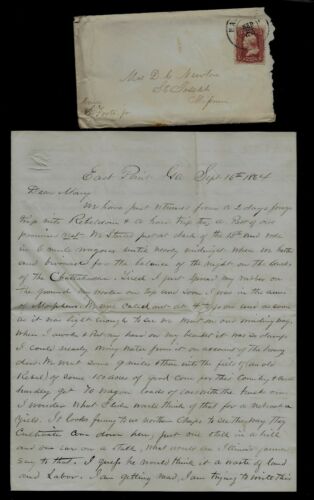 Mrs D. C. Newton
St. Joseph
Mich
East Point Ga Sept 16th 1864
Dear Mary
We have just returned from a 2 days forage
trip into Rebeldom &
promises not. We started just at dark of the 13th and rode
in 6 mule wagons until nearly midnight when we halted
and bivouacked for the balance of the night on the banks
of the Chattahoochee. Tired I just spread my rubber on
the ground my on top and soon I was in the arms
of Morpheus. We were called out at 4 and as soon
as it was light enough to see we went on our winding way.
When I awoke & Put my hand on my blanket it was so damp
I could nearly wring water from it on account of the heavy
dew. We went some 9 miles & then into the field (of an old
Rebel) of some 100 acres of good corn for this Country & there
get 70 wagon loads of corn with the husk on.
I wonder what Father would think of that for a
field. It looks funny to us northern Chaps to see the way they
Cultivate corn down here, just one stalk in a hill
and one ear on a stalk. What would an Illinois farmer
say to that. I guess he would think it a waste of land
and Labor. I am getting mad, I am trying to write this